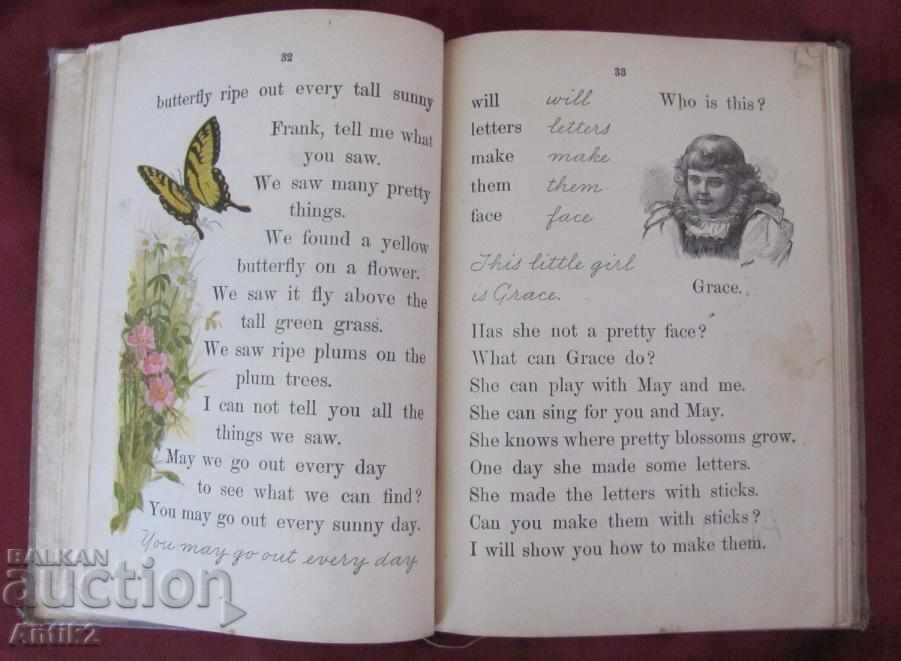 32
butterfly ripe out every tall sunny
Frank, tell me what
you saw.
We saw many pretty
things.
We found a yellow
butterfly on a flower.
We saw it fly above the
tall green grass.
We saw ripe plums on the
plum trees.
I can not tell you all the
things we saw.
May we go out every day
to see what we can find?
You may go out every sunny day.
You may go out every day
33
will will
letters letters
make make
them them
face face
Who is this?
This little girl
is Grace.
Grace.
Has she not a pretty face?
What can Grace do?
She can play with May and me.
She can sing for you and May.
She knows where pretty blossoms grow.
One day she made some letters.
She made the letters with sticks.
Can you make them with sticks?
I will show you how to make them.
BALKAN
auction
Antik2